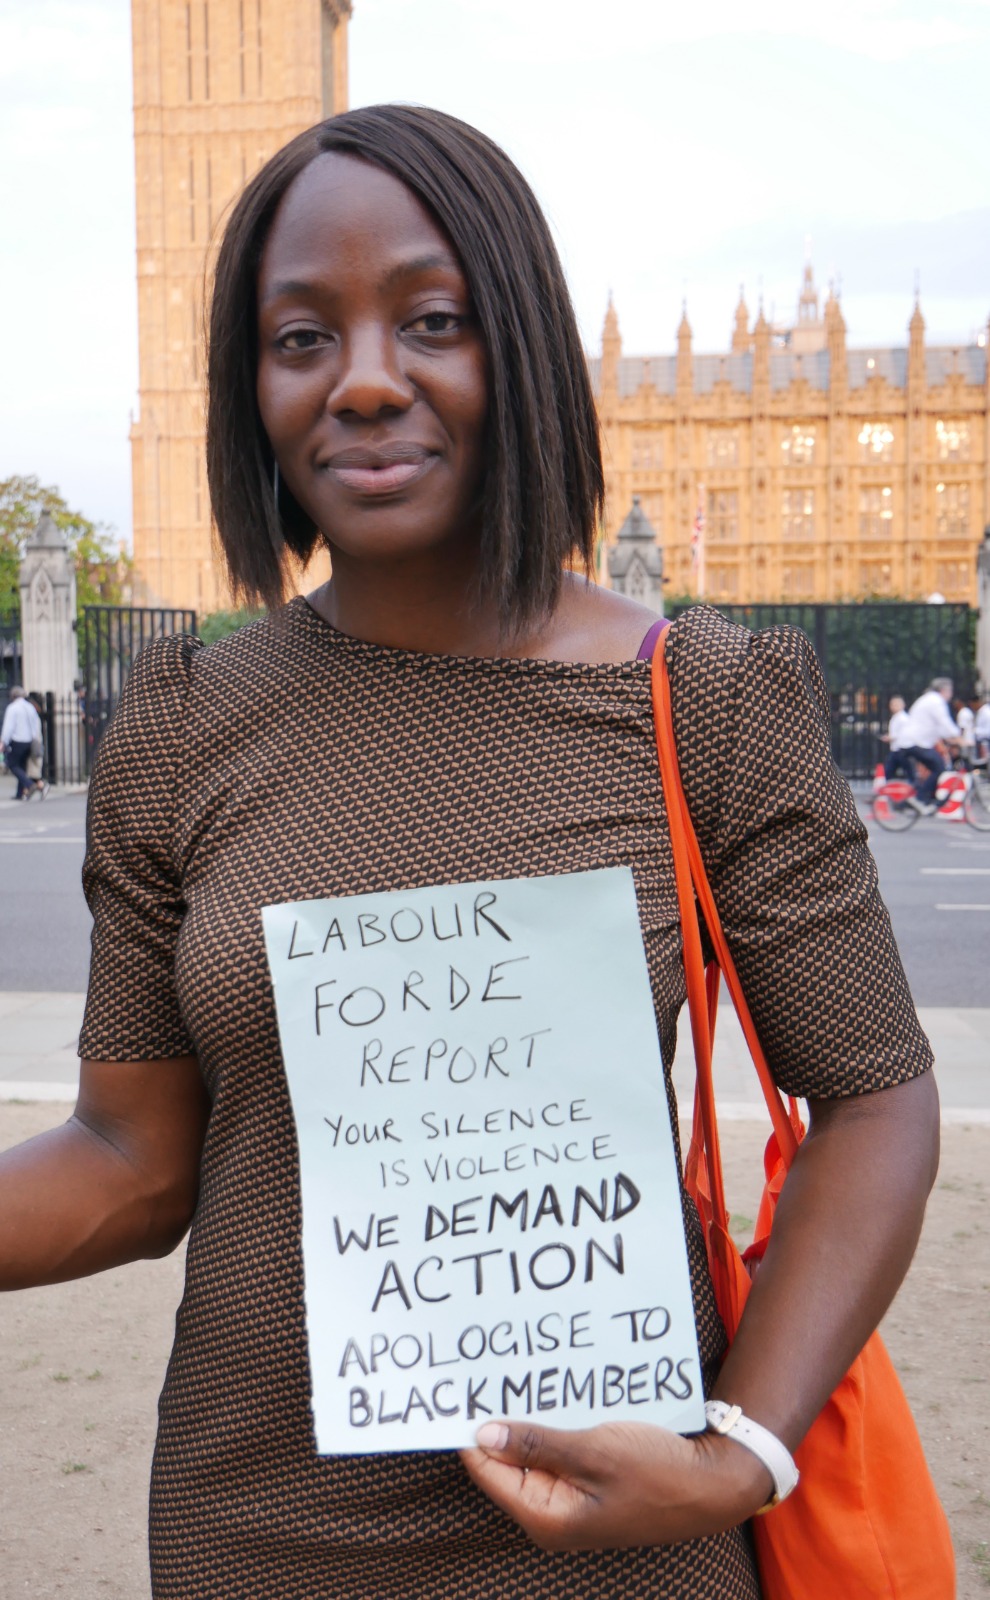 LABOUR
FORDE
REPORT
YOUR SILENCE
IS VIOLENCE
WE DEMAND
ACTION
APOLOGISE TO
BLACK MEMBERS